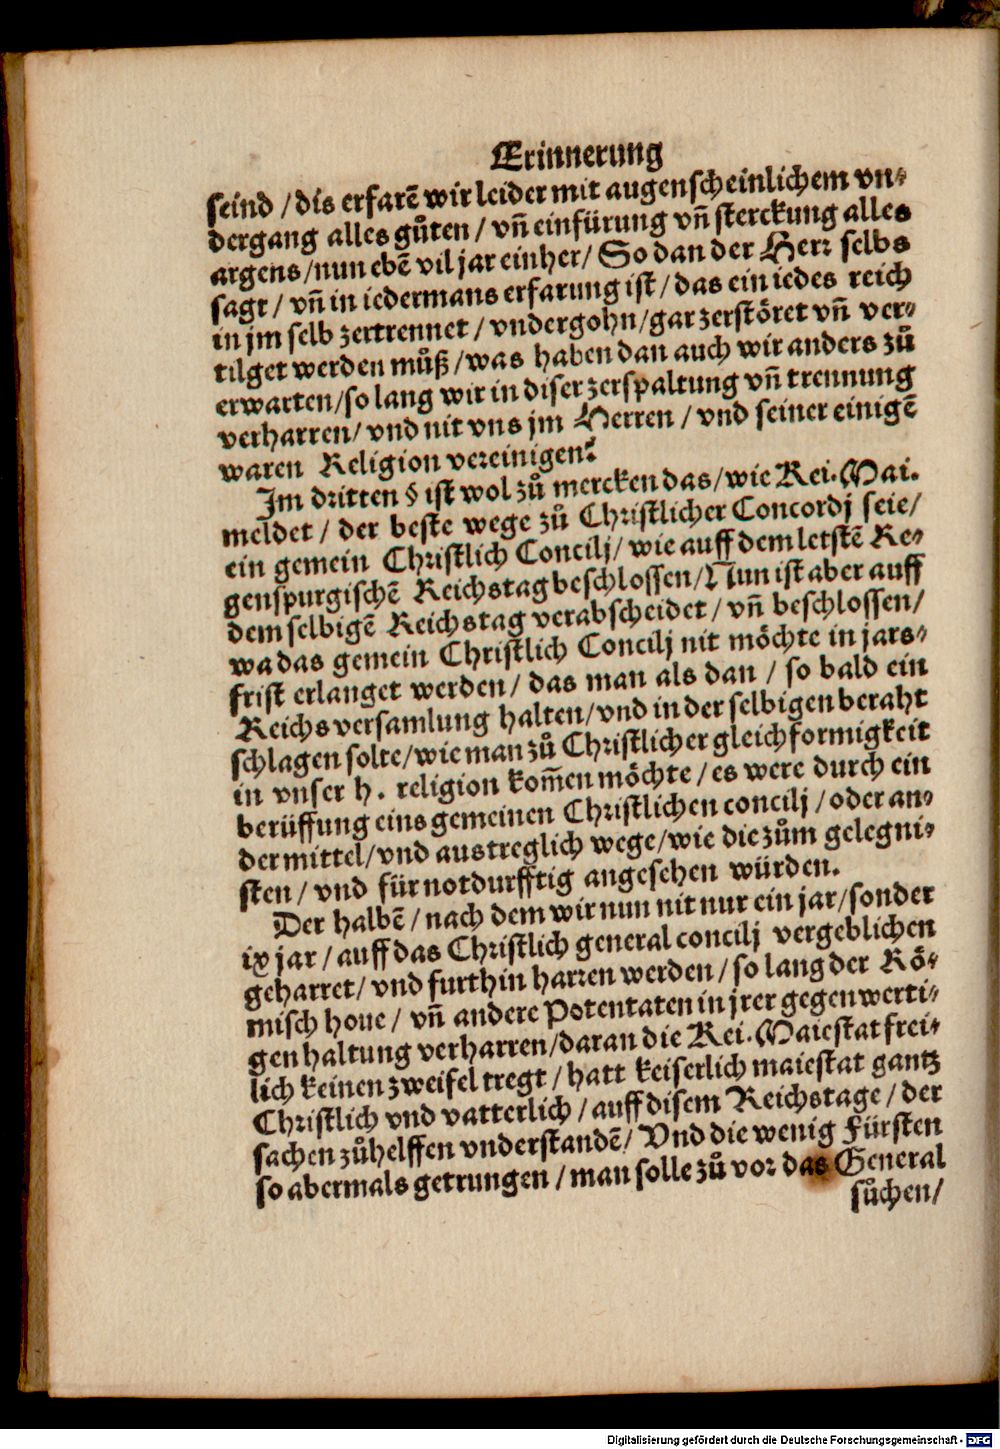 Erinnerung
seind / dis erfarē wir leider mit augenscheinlichem vn⸗
dergang alles gůten / vñ einfürung vñ sterckung alles
argens / nun ebē vil jar einher / So dan der Herr selbs
sagt / vñ in iedermans erfarung ist / das ein iedes reich
in jm selb zertrennet / vndergohn / gar zerstöret vñ ver⸗
tilget werden můß / was haben dan auch wir anders zů
erwarten / so lang wir in diser zerspaltung vñ trennung
verharren / vnd nit vns jm Herren / vnd seiner einigē
waren Religion vereinigen?
Im dritten § ist wol zů mercken das / wie Kei. Mai.
meldet / der beste wege zů Christlicher Concordj seie /
ein gemein Christlich Concilj / wie auff dem letstē Re⸗
genspurgischē Reichstag beschlossen / Nun ist aber auff
dem selbigē Reichstag verabscheidet / vñ beschlossen /
wa das gemein Christlich Concilj nit möchte in jars⸗
frist erlanget werden / das man als dan / so bald ein
Reichsversamlung halten / vnd in der selbigen beraht
schlagen solte / wie man zů Christlicher gleichformigkeit
in vnser h. religion kom̄en möchte / es were durch ein
berüffung eins gemeinen Christlichen concilj / oder an⸗
der mittel / vnd austreglich wege / wie die zům gelegni⸗
sten / vnd für notdurfftig angesehen würden.
Der halbē / nach dem wir nun nit nur ein jar / sonder
ix jar / auff das Christlich general concilj vergeblichen
geharret / vnd furthin harren werden / so lang der Rö⸗
misch houe / vñ andere Potentaten in jrer gegenwerti⸗
gen haltung verharren / daran die Kei. Maiestat frei⸗
lich keinen zweifel tregt / hatt keiserlich maiestat gantz
Christlich vnd vatterlich / auff disem Reichstage / der
sachen zůhelffen vnderstandē / Vnd die wenig Fürsten
so abermals getrungen / man solle zů vor das General
sůchen /
Digitalisierung gefördert durch die Deutsche Forschungsgemeinschaft - DFG